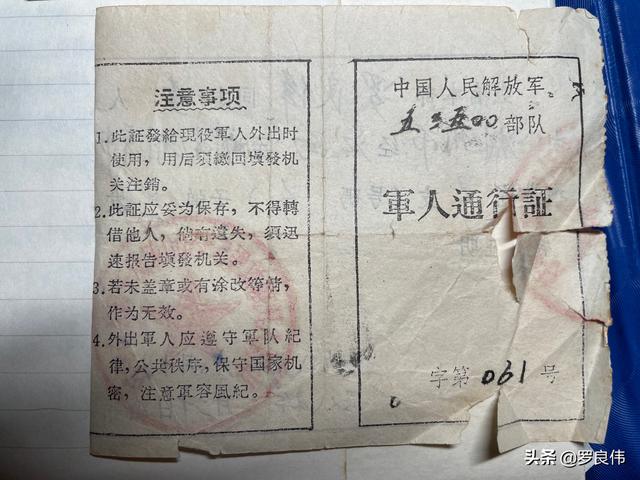 注意事项
1.此証發給現役軍人外出时
使用，用后须繳回填發机
关注銷。
2.此証应妥为保存，不得轉
借他人，倘有遺失，须迅
速报告填發机关。
3.若未盖章或有涂改等情，
作为无效。
4.外出軍人应遵守軍队紀
律，公共秩序，保守国家机
密，注意軍容風紀。
中国人民解放军
五三五〇〇部队
軍人通行証
字第061号
头条 @罗良伟